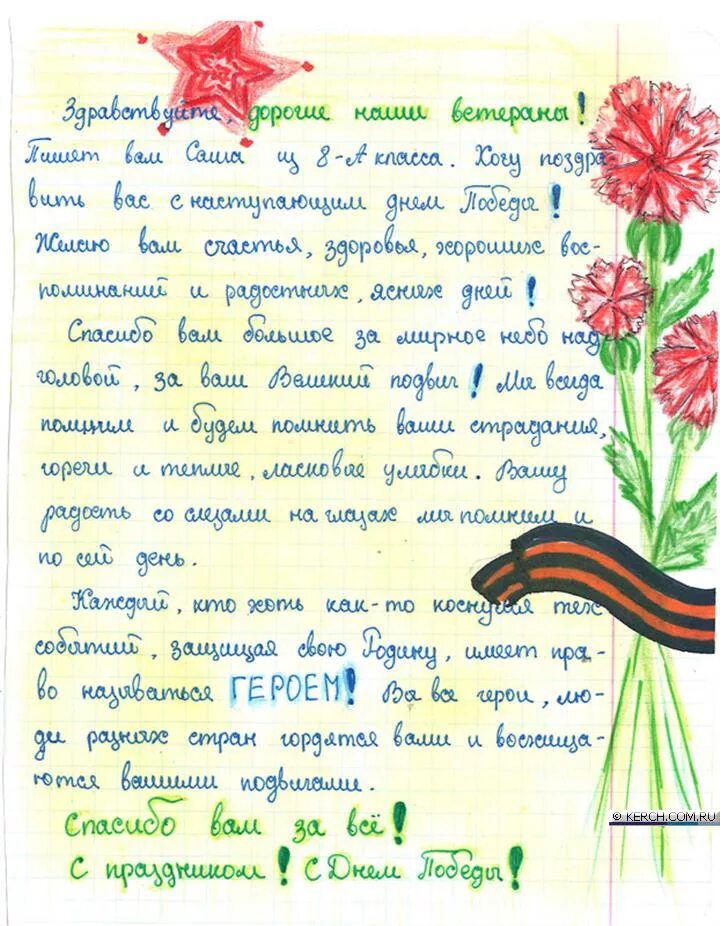 Здравствуйте, дорогие наши ветераны!
Пишет вам Саша из 8-А класса. Хочу поздра
вить вас с наступающим днем Победы!
Желаю вам счастья, здоровья, хороших вос-
поминаний и радостных, ясных дней!
Спасибо вам большое за мирное небо над
головой, за ваш Великий подвиг! Мы всегда
помним и будем помнить ваши страдания,
горечи и теплые, ласковые улыбки. Вашу
радость со слезами на глазах мы помним и
по сей день.
Каждый, кто хоть как-то коснулся тех
событий, защищая свою Родину, имеет пра-
во называться ГЕРОЕМ! Вы все герои, лю-
ди разных стран гордятся вами и восхища-
ются вашими подвигами.
Спасибо вам за всё!
С праздником! С Днем Победы!
© KERCH.COM.RU